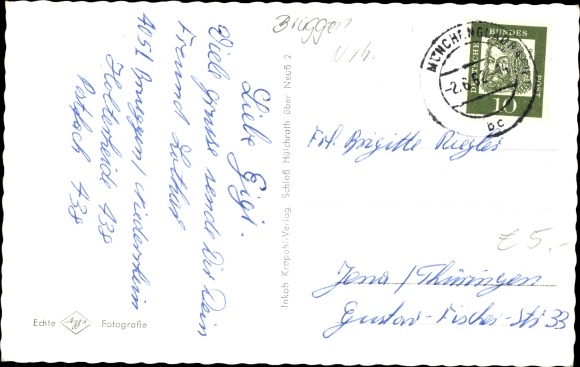 Brüggen
Liebe Gigi.
Viele Grüsse sende Dir Dein
Freund Lothar
4051 Brüggen/Niederrhein
Holterheide 438
Postfach 438
Echte
Fotografie
Jakob Krapohl-Verlag, Schloß Hülchrath über Neuß 2
MÜNCHENGLADBACH
-2.6.62
bc
DEUTSCHE
BUNDES
POST
10
Frl. Brigitte Riegler
£ 5,-
Jena / Thüringen
Gustav-Fischer-Str 33